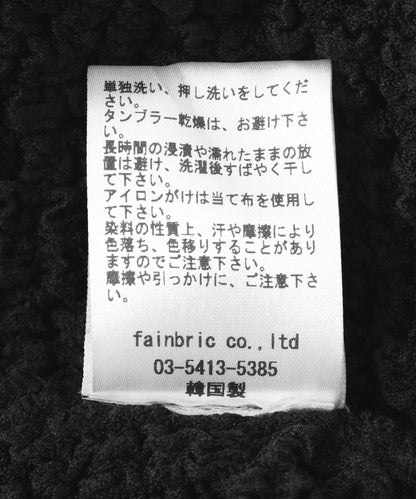 単独洗い、押し洗いをしてくだ
さい。
タンブラー乾燥は、お避け下さ
い。
長時間の浸漬や濡れたままの放
置は避け、洗濯後すばやく干し
て下さい。
アイロンがけは当て布を使用し
て下さい。
染料の性質上、汗や摩擦により
色落ち、色移りすることがあり
ますのでご注意下さい。
摩擦や引っかけに、ご注意下さ
い。
fainbric co.,ltd
03-5413-5385
韓国製